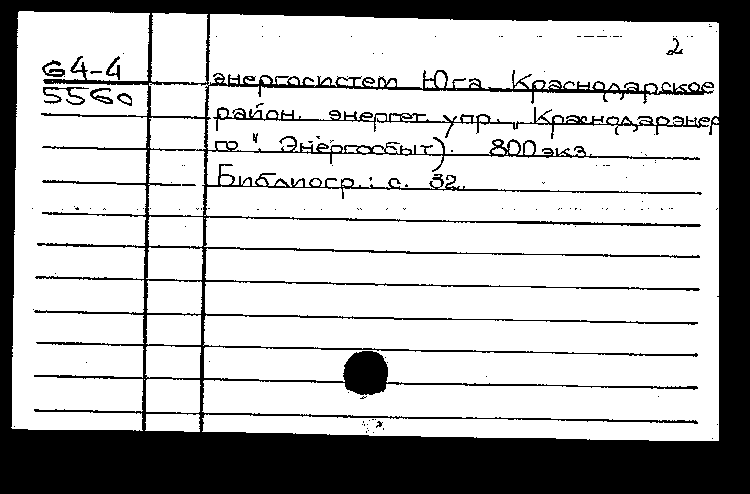 2
64-4
5560
энергосистем Юга. Краснодарское
район. энергет. упр. „Краснодарэнер
го". Энергосбыт). 800 экз.
Библиогр.: с. 32.